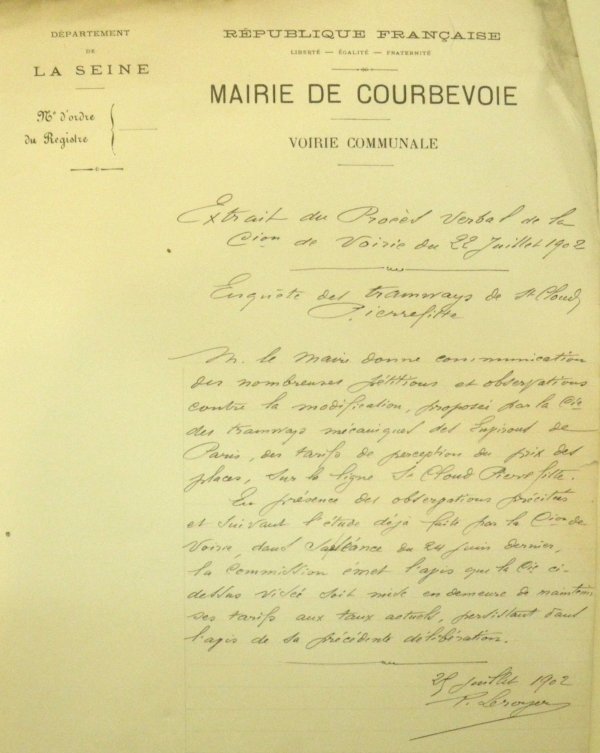 DÉPARTEMENT
DE
LA SEINE
Nº d'ordre
du Registre
RÉPUBLIQUE FRANÇAISE
LIBERTÉ — ÉGALITÉ — FRATERNITÉ
MAIRIE DE COURBEVOIE
VOIRIE COMMUNALE
Extrait du Procès Verbal de la
Cion de Voirie du 22 Juillet 1902
Enquête des tramways de St Cloud
Pierrefitte
M. le Maire donne communication
des nombreuses pétitions et observations
contre la modification, proposée par la Cie
des tramways mécaniques des Environs de
Paris, des tarifs de perception du prix des
places, sur la ligne St Cloud Pierrefitte.
En présence des observations précitées
et suivant l'étude déjà faite par la Cion de
Voirie, dans sa séance du 24 juin dernier,
la Commission émet l'avis que la Cie ci-
dessus visée soit mise en demeure de maintenir
ses tarifs aux taux actuels, persistant dans
l'avis de sa précédente délibération.
25 juillet 1902
P. Leroyer